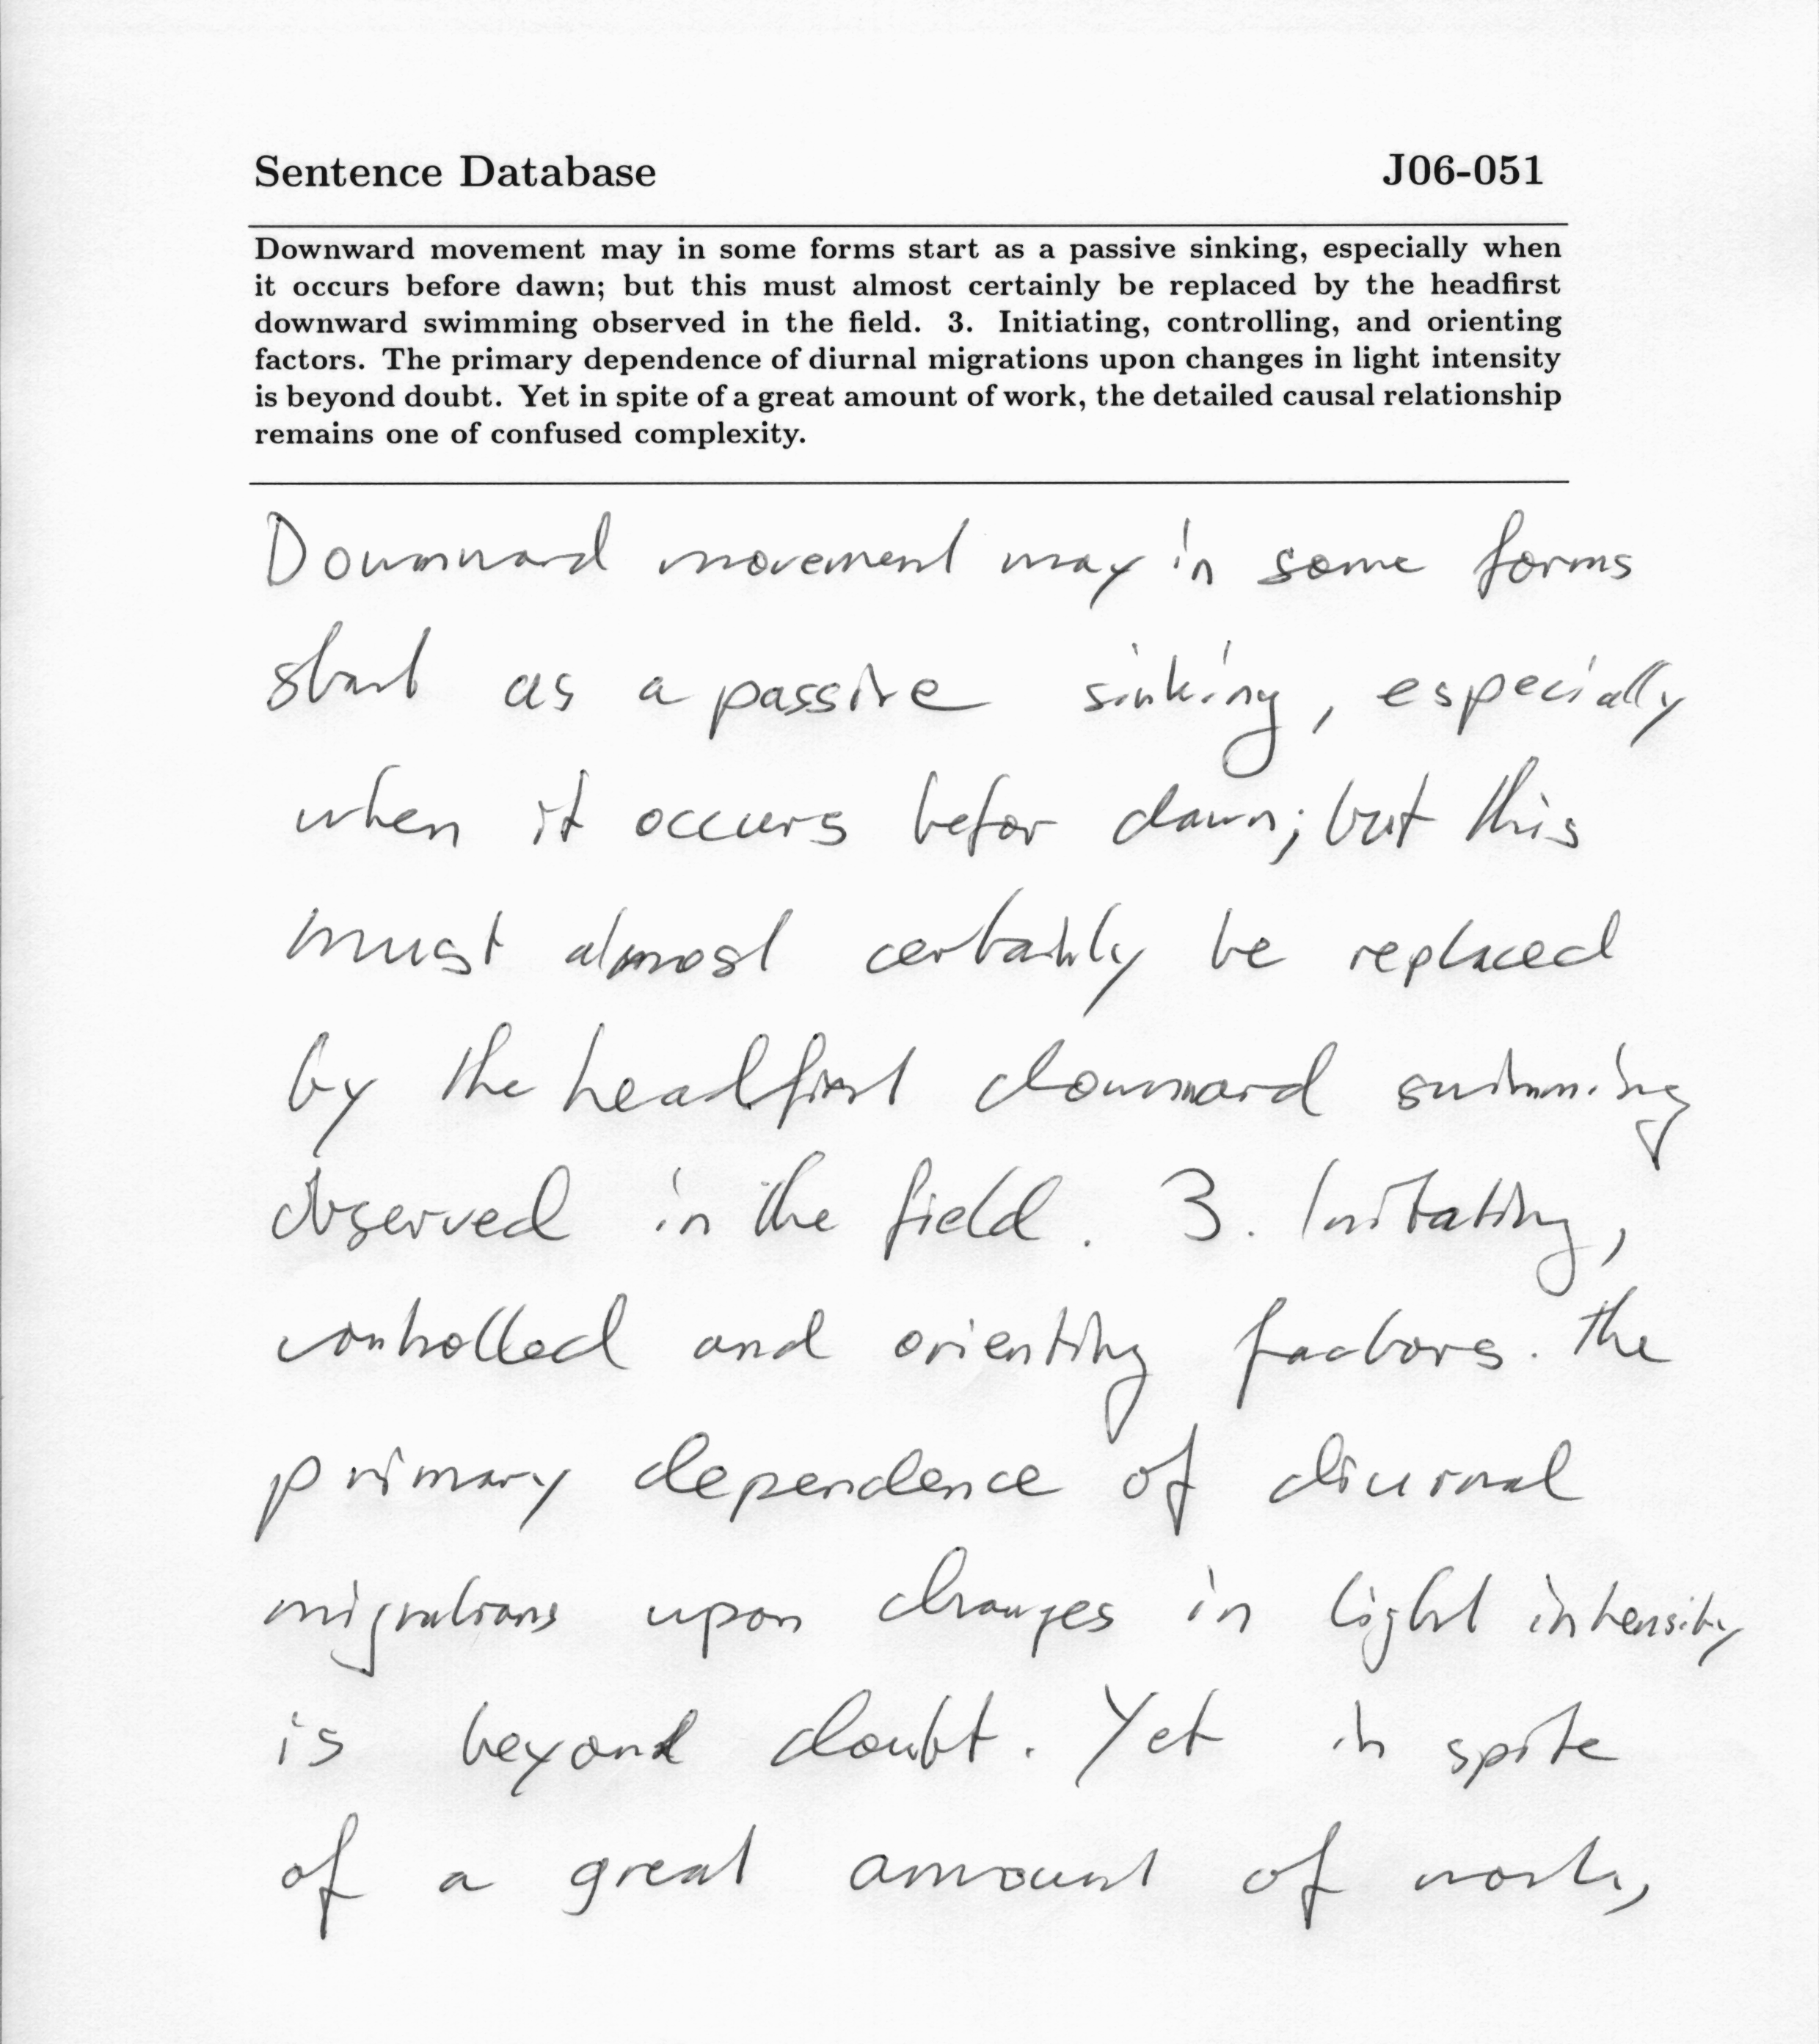 Sentence Database J06-051
Downward movement may in some forms start as a passive sinking, especially when
it occurs before dawn; but this must almost certainly be replaced by the headfirst
downward swimming observed in the field. 3. Initiating, controlling, and orienting
factors. The primary dependence of diurnal migrations upon changes in light intensity
is beyond doubt. Yet in spite of a great amount of work, the detailed causal relationship
remains one of confused complexity.
Downward movement may in some forms
start as a passive sinking, especially
when it occurs befor dawn; but this
must almost certainly be replaced
by the headfirst downward swimming
observed in the field. 3. Initating,
controlled and orienting factors. The
primary dependence of diurnal
migrations upon changes in light intensity
is beyond doubt. Yet in spite
of a great amount of work,